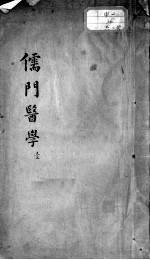 儒門醫學